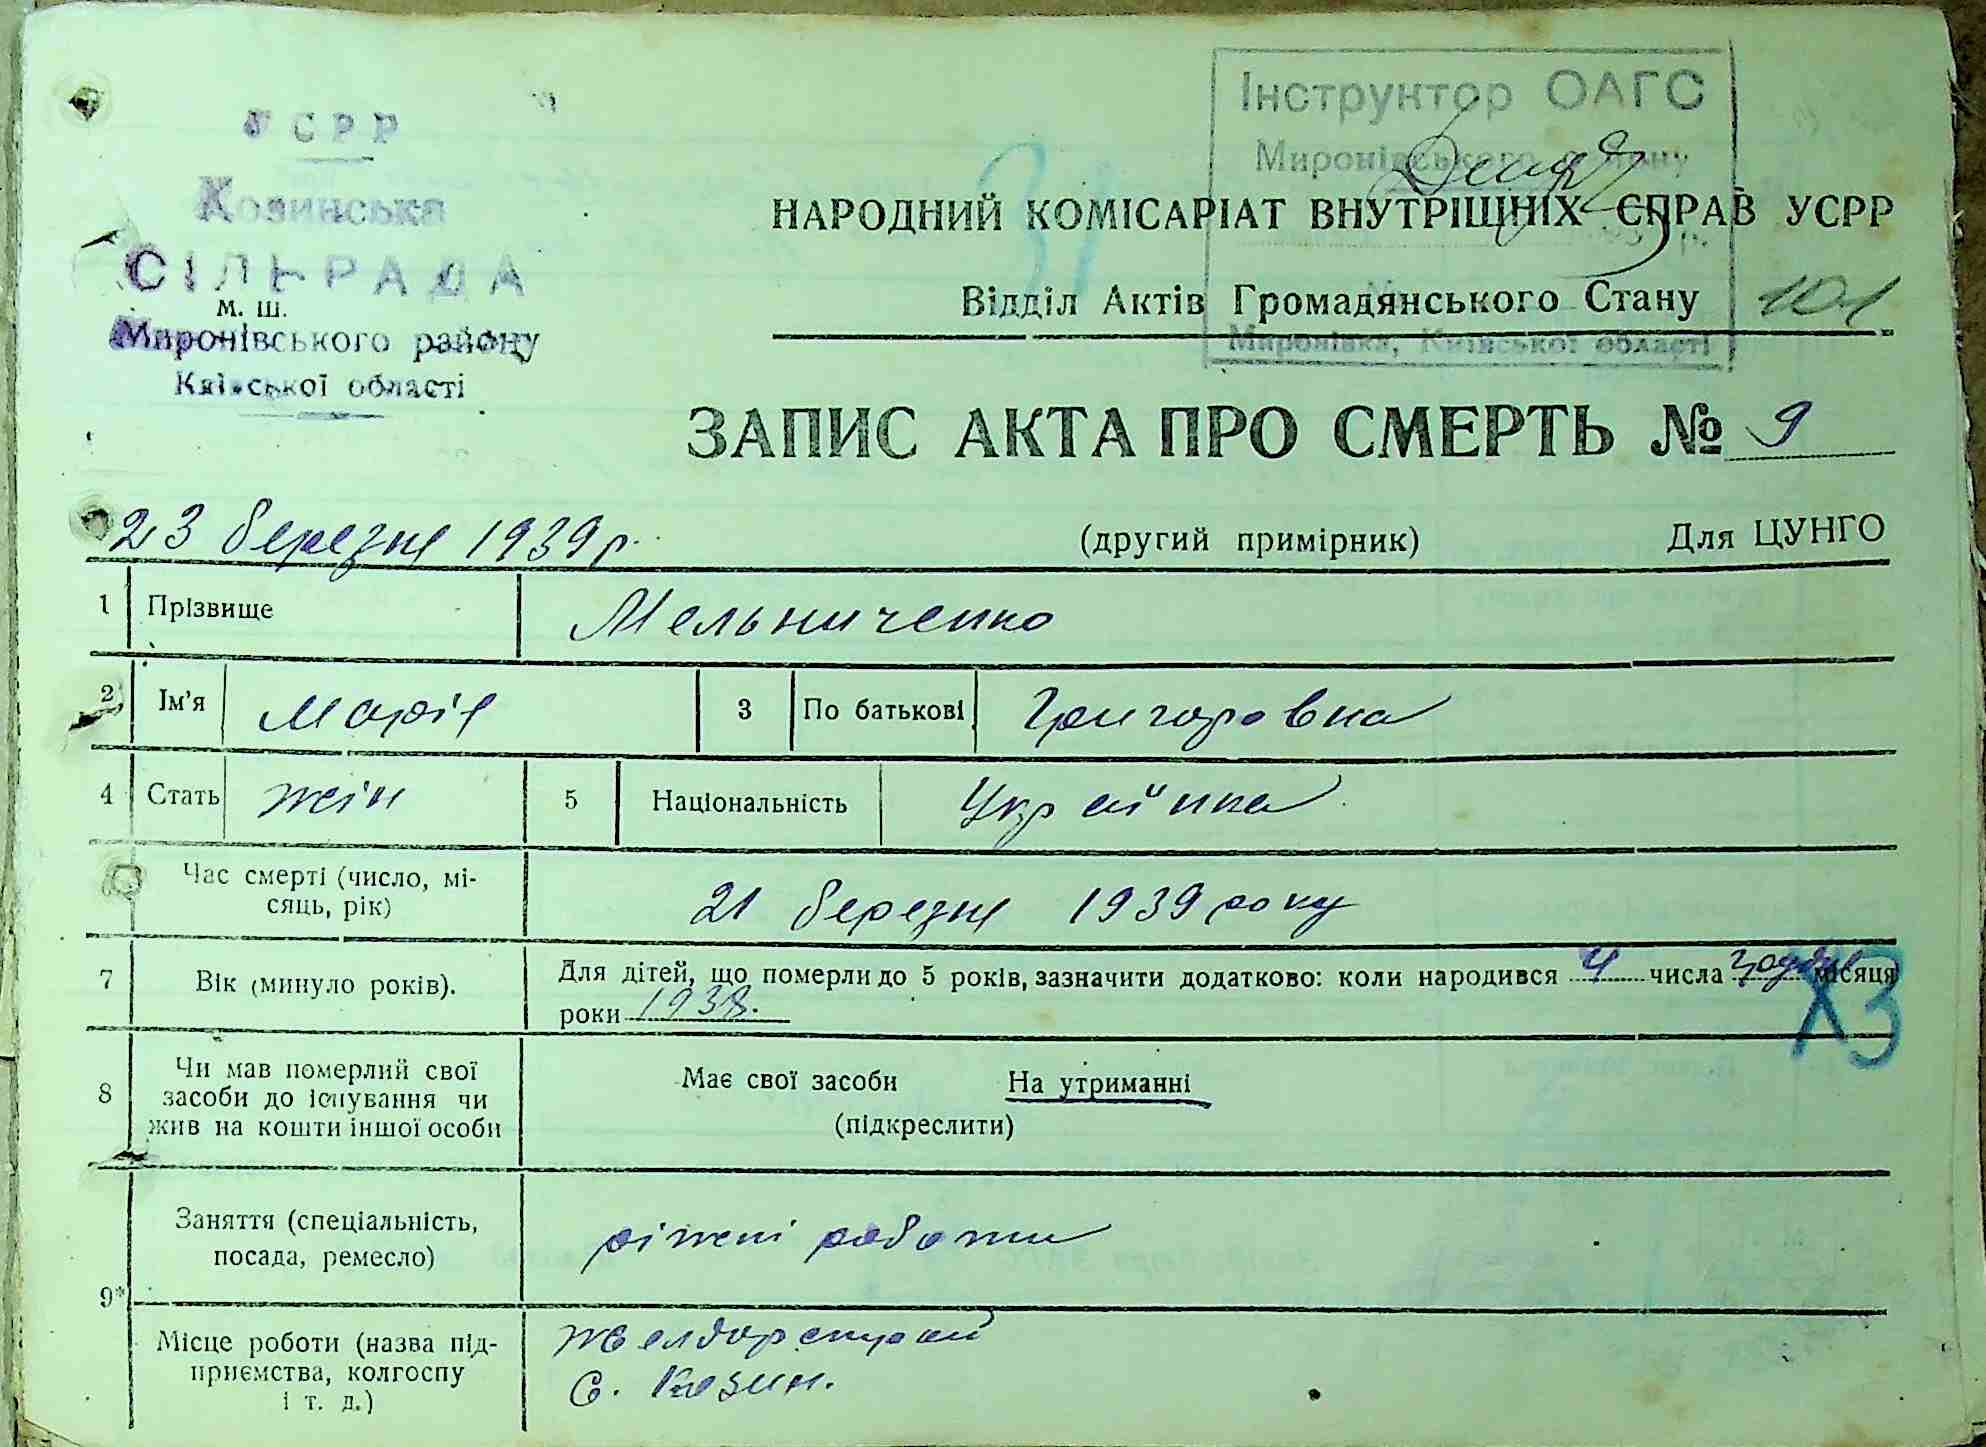 УСРР
Козинська
СІЛЬРАДА
М. Ш.
Миронівського району
Київської області
Інструктор ОАГС
Миронівського району
Миронівка, Київської області
31
НАРОДНИЙ КОМІСАРІАТ ВНУТРІШНІХ СПРАВ УСРР
Відділ Актів Громадянського Стану 101
ЗАПИС АКТА ПРО СМЕРТЬ № 9
23 березня 1939 р.
(другий примірник) Для ЦУНГО
1 Прізвище Мельниченко
2 Ім'я Марія 3 По батькові Григоровна
4 Стать жін 5 Національність Українка
Час смерті (число, мі-
сяць, рік) 21 березня 1939 року
7 Вік (минуло років). Для дітей, що померли до 5 років, зазначити додатково: коли народився 4 числа грудня місяця
роки 1938.
Х3
8 Чи мав померлий свої
засоби до існування чи
жив на кошти іншої особи
Має свої засоби На утриманні
(підкреслити)
9* Заняття (спеціальність,
посада, ремесло) ріжні работи
Місце роботи (назва під-
приємства, колгоспу
і т. д.)
с. Козин.